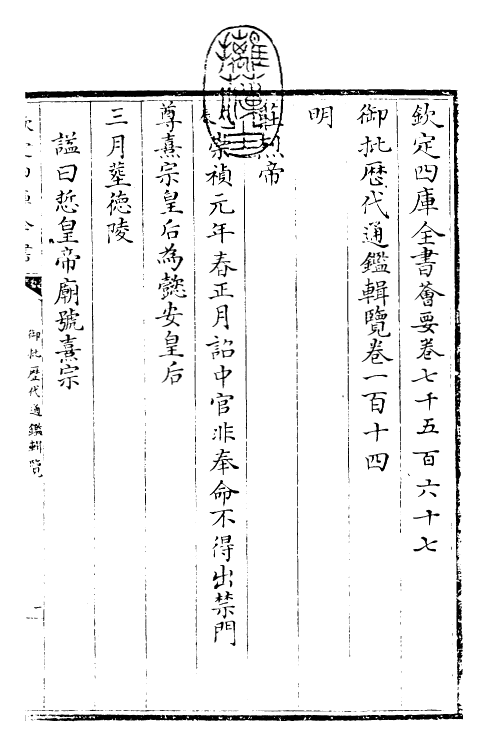 欽定四庫全書薈要卷七千五百六十七
御批歴代通鑑輯覽卷一百十四
明
莊烈帝
崇禎元年春正月詔中官非奉命不得出禁門
尊熹宗皇后為懿安皇后
三月塟德陵
諡曰悊皇帝廟號熹宗
御批歷代通鑑輯覽